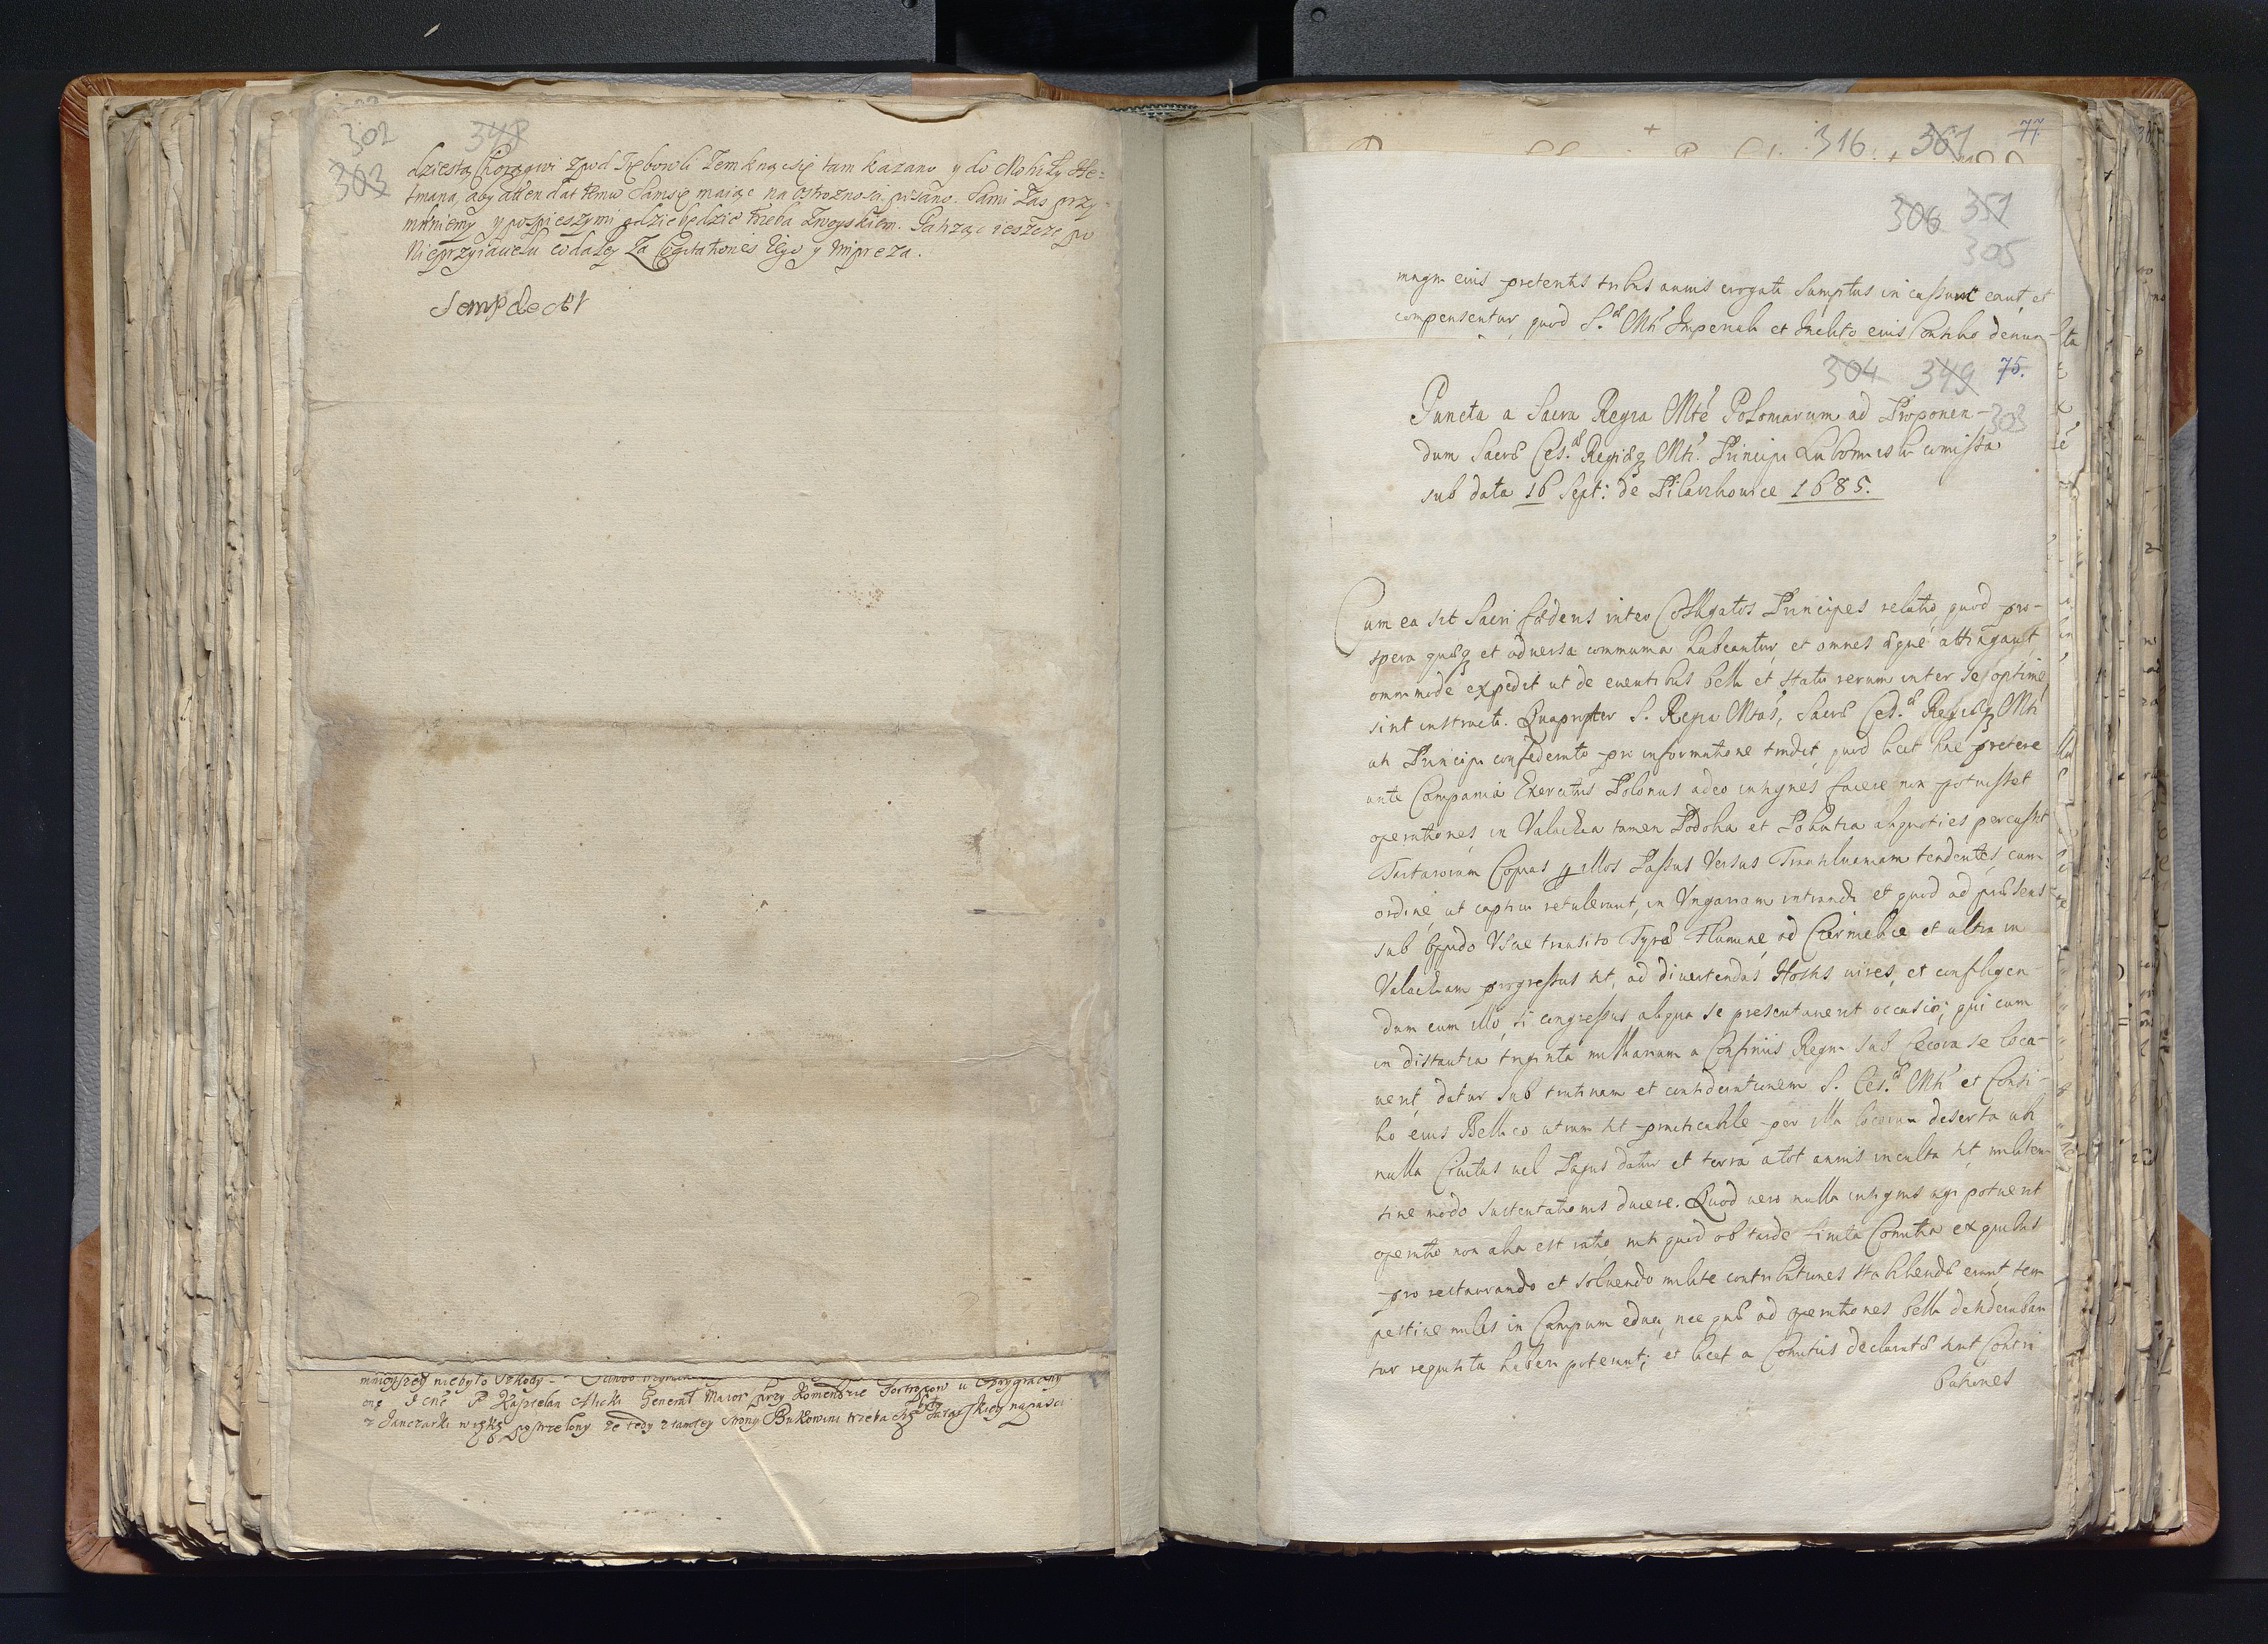 302 348
303
dziestą Chorągwi zpod Trębowli zemknąc się tam kazano y do Mohiły He=
tmana, aby attendat temu samsię maiąc na ostroznosci pisano. Sami zas przy
mkniemy y pospieszymi gdzie będzie trzeba zwoyskiem. Patrząc ieszcze po
Nieprzyiacielu co daley za Cogitationes Iego y Impreza.
mnieyszey niebyło szkody
General Maior przy Komendzie
z Janczarki w rękę postrzelony ze tedy z tamtey strony Bukowiny trzeba
316 361 77.
306 351
305
magni eius pretentis tribus annis erogati sumptus in cassum eant, et
compensentur, quod S. Mti Imperiali et Inclito eius Consilio denun-
304 349 75.
303
Puncta a Sacra Regia Mte Poloniarum ad Proponen-
dum Sacrae Ces. Regiaeq Mti. Principi Lubomirski comissa
sub data 16 Sept: de Pilaszkowice 1685.
Cum ea sit Sacri foederis inter Colligatos Principes relatio, quod pro-
spera quaeq et adversa communia habeantur, et omnes aeque attingant,
omnimode expedit ut de eventibus belli et statu rerum inter se optime
sint instructi. Quapropter S. Regia Mtas, Sacrae Ces. Regiaeq Mti
uti Principi confederato pro informatione tradit, quod licet hac preterє
unte Campania Exercitus Polonus adeo insignes facere non potuisset
operationes, in Valachia tamen Podolia et Pokutia aliquoties percussit
Tartarorum Copias p illos Passus Versus Transilvaniam tendentes, cum
ordine ut captivi retulerunt, in Ungariam intrandi et quod ad praesens
sub oppido Uscie transito Tyrae Flumine, ad Czernielice et ultra in
Valachiam progressus sit, ad divertendas Hostis vires, et confligen-
dum cum illo, si congressus aliqua se presentaverit occasio; qui cum
in distantia triginta milliarium a Confiniis Regni sub Cecora se loca-
verit, datur sub trutinam et considerationem S. Ces. Mti et Consi-
lio eius Bellico utrum sit practicabile per illa locorum deserta ubi
nulla Civitas vel Pagus datur et terra a tot annis inculta sit, militem
sine modo sustentationis ducere. Quod vero nulla insignis agi potuerit
operatio non alia est ratio, nisi quod ob tarde finita Comitia ex quibus
pro restaurando et solvendo milite contributiones stabiliendae erant, tem
pestive miles in Campum educi, nec quae ad operationes belli desideraban
tur requisita haberi poterant; et licet a Comitiis declaratae sint Contri
butiones